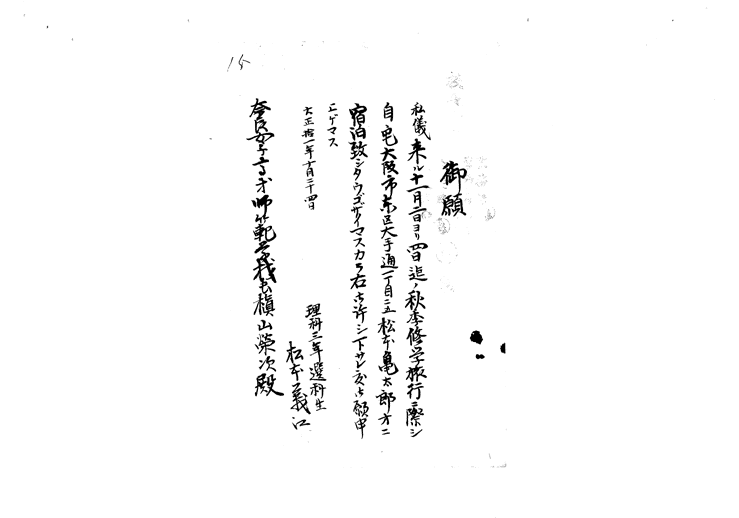 15
御願
私儀来ル十一月二日ヨリ四日迄ノ秋季修学旅行ニ際シ
自宅大阪市東区大手通一丁目二五松本亀太郎方ニ
宿泊致シタウゴザイマスカラ右御許シ下サレ度御願申
上ゲマス
大正拾一年十月二十四日
理科三年選科生
松本義江
奈良女子高等師範学校長槙山榮次殿